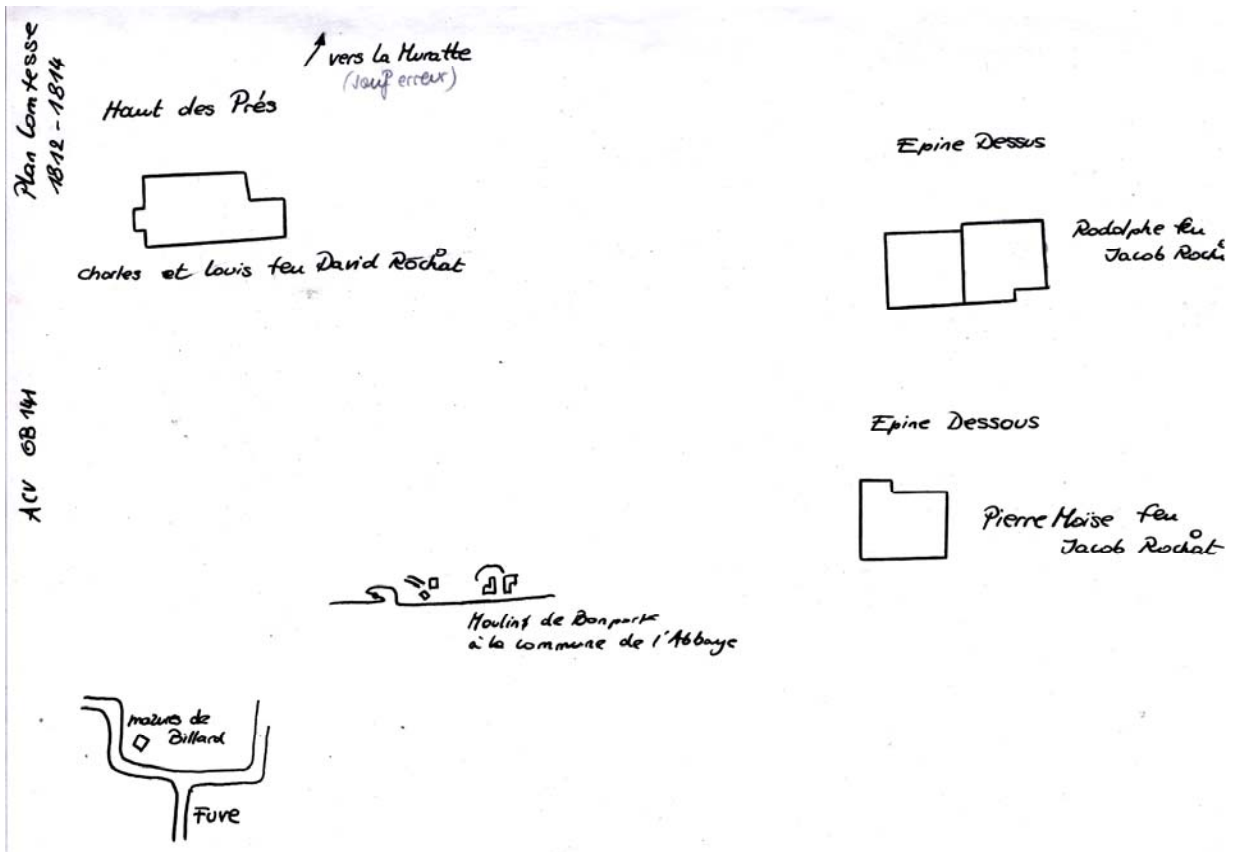 Plan Comtesse
1812-1814
ACV GB 141
vers la Muratte
(sauf erreur)
Haut des Prés
Charles et Louis feu David Rochat
Epine Dessus
Rodolphe feu
Jacob Roch
Epine Dessous
Pierre Moïse feu
Jacob Rochat
Moulins de Bonport
à la commune de l'Abbaye
mazures de
Billard
Fuve